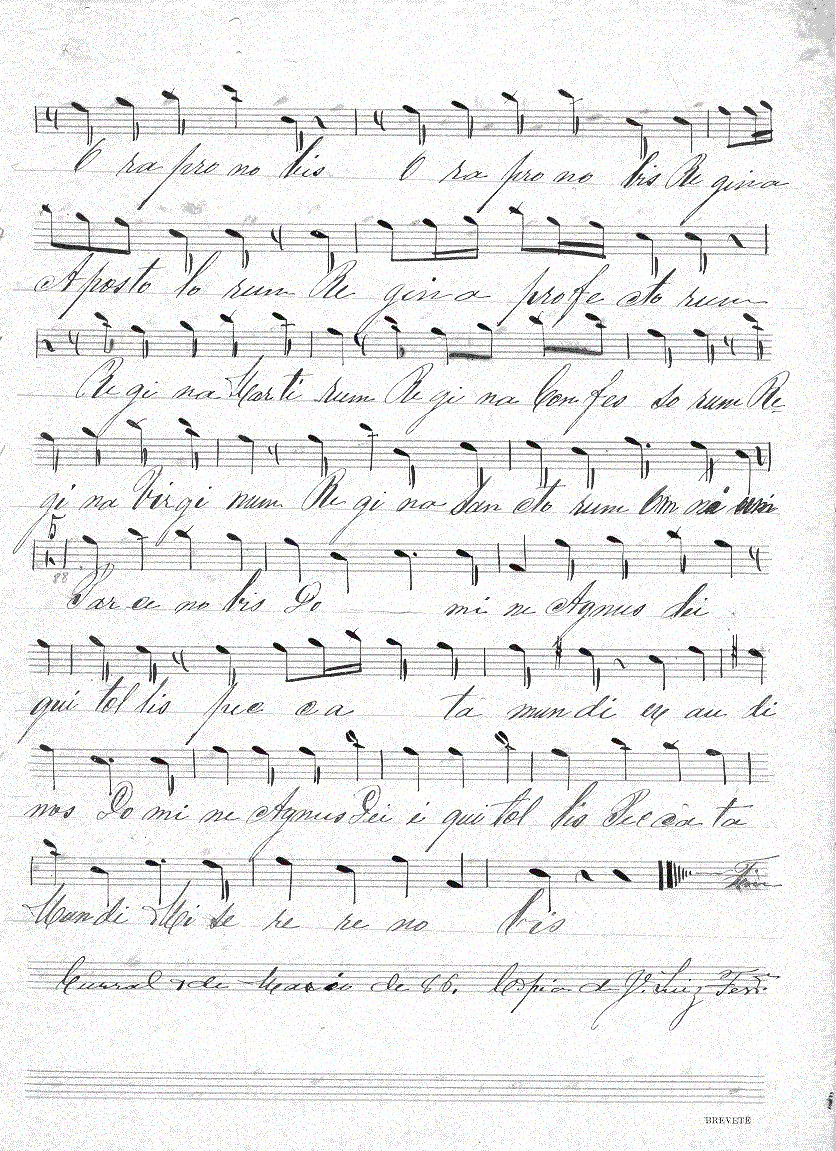 O ra pro no bis O ra pro no bis Re gina
Aposto lo rum Re gin a profe cto rum
Re gi na Marti rum Re gi na Con fes so rum Re-
gi na Virgi num Re gi na San cto rum Om ni um
5
88
Par ce no bis Do mi ne Agnus Dei
qui tol lis pec ca ta mun di ex au di
nos Do mi ne Agnus Dei i qui tol lis Pec ca ta
Fim
Mun di Mi se re re no bis
Curral de Maio de 86. Copia de Luiz
BREVETÉ